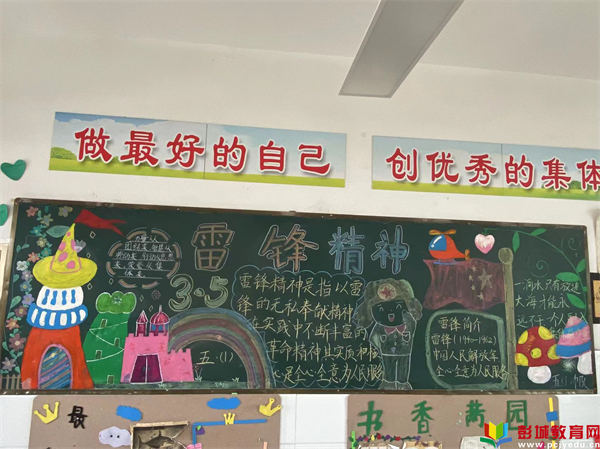 做最好的自己
创优秀的集体
雷锋精神
3·5
雷锋精神是指以雷
锋的无私奉献精神
在实践中不断丰富的
革命精神其实质和核
心是全心全意为人民服
五·(1)
雷锋简介
雷锋(1940-1962)
中国人民解放军
全心全意为人民服务
一滴水只有放进
大海才能永
最
书香满园
彭城教育网
www.pcjyedu.cn